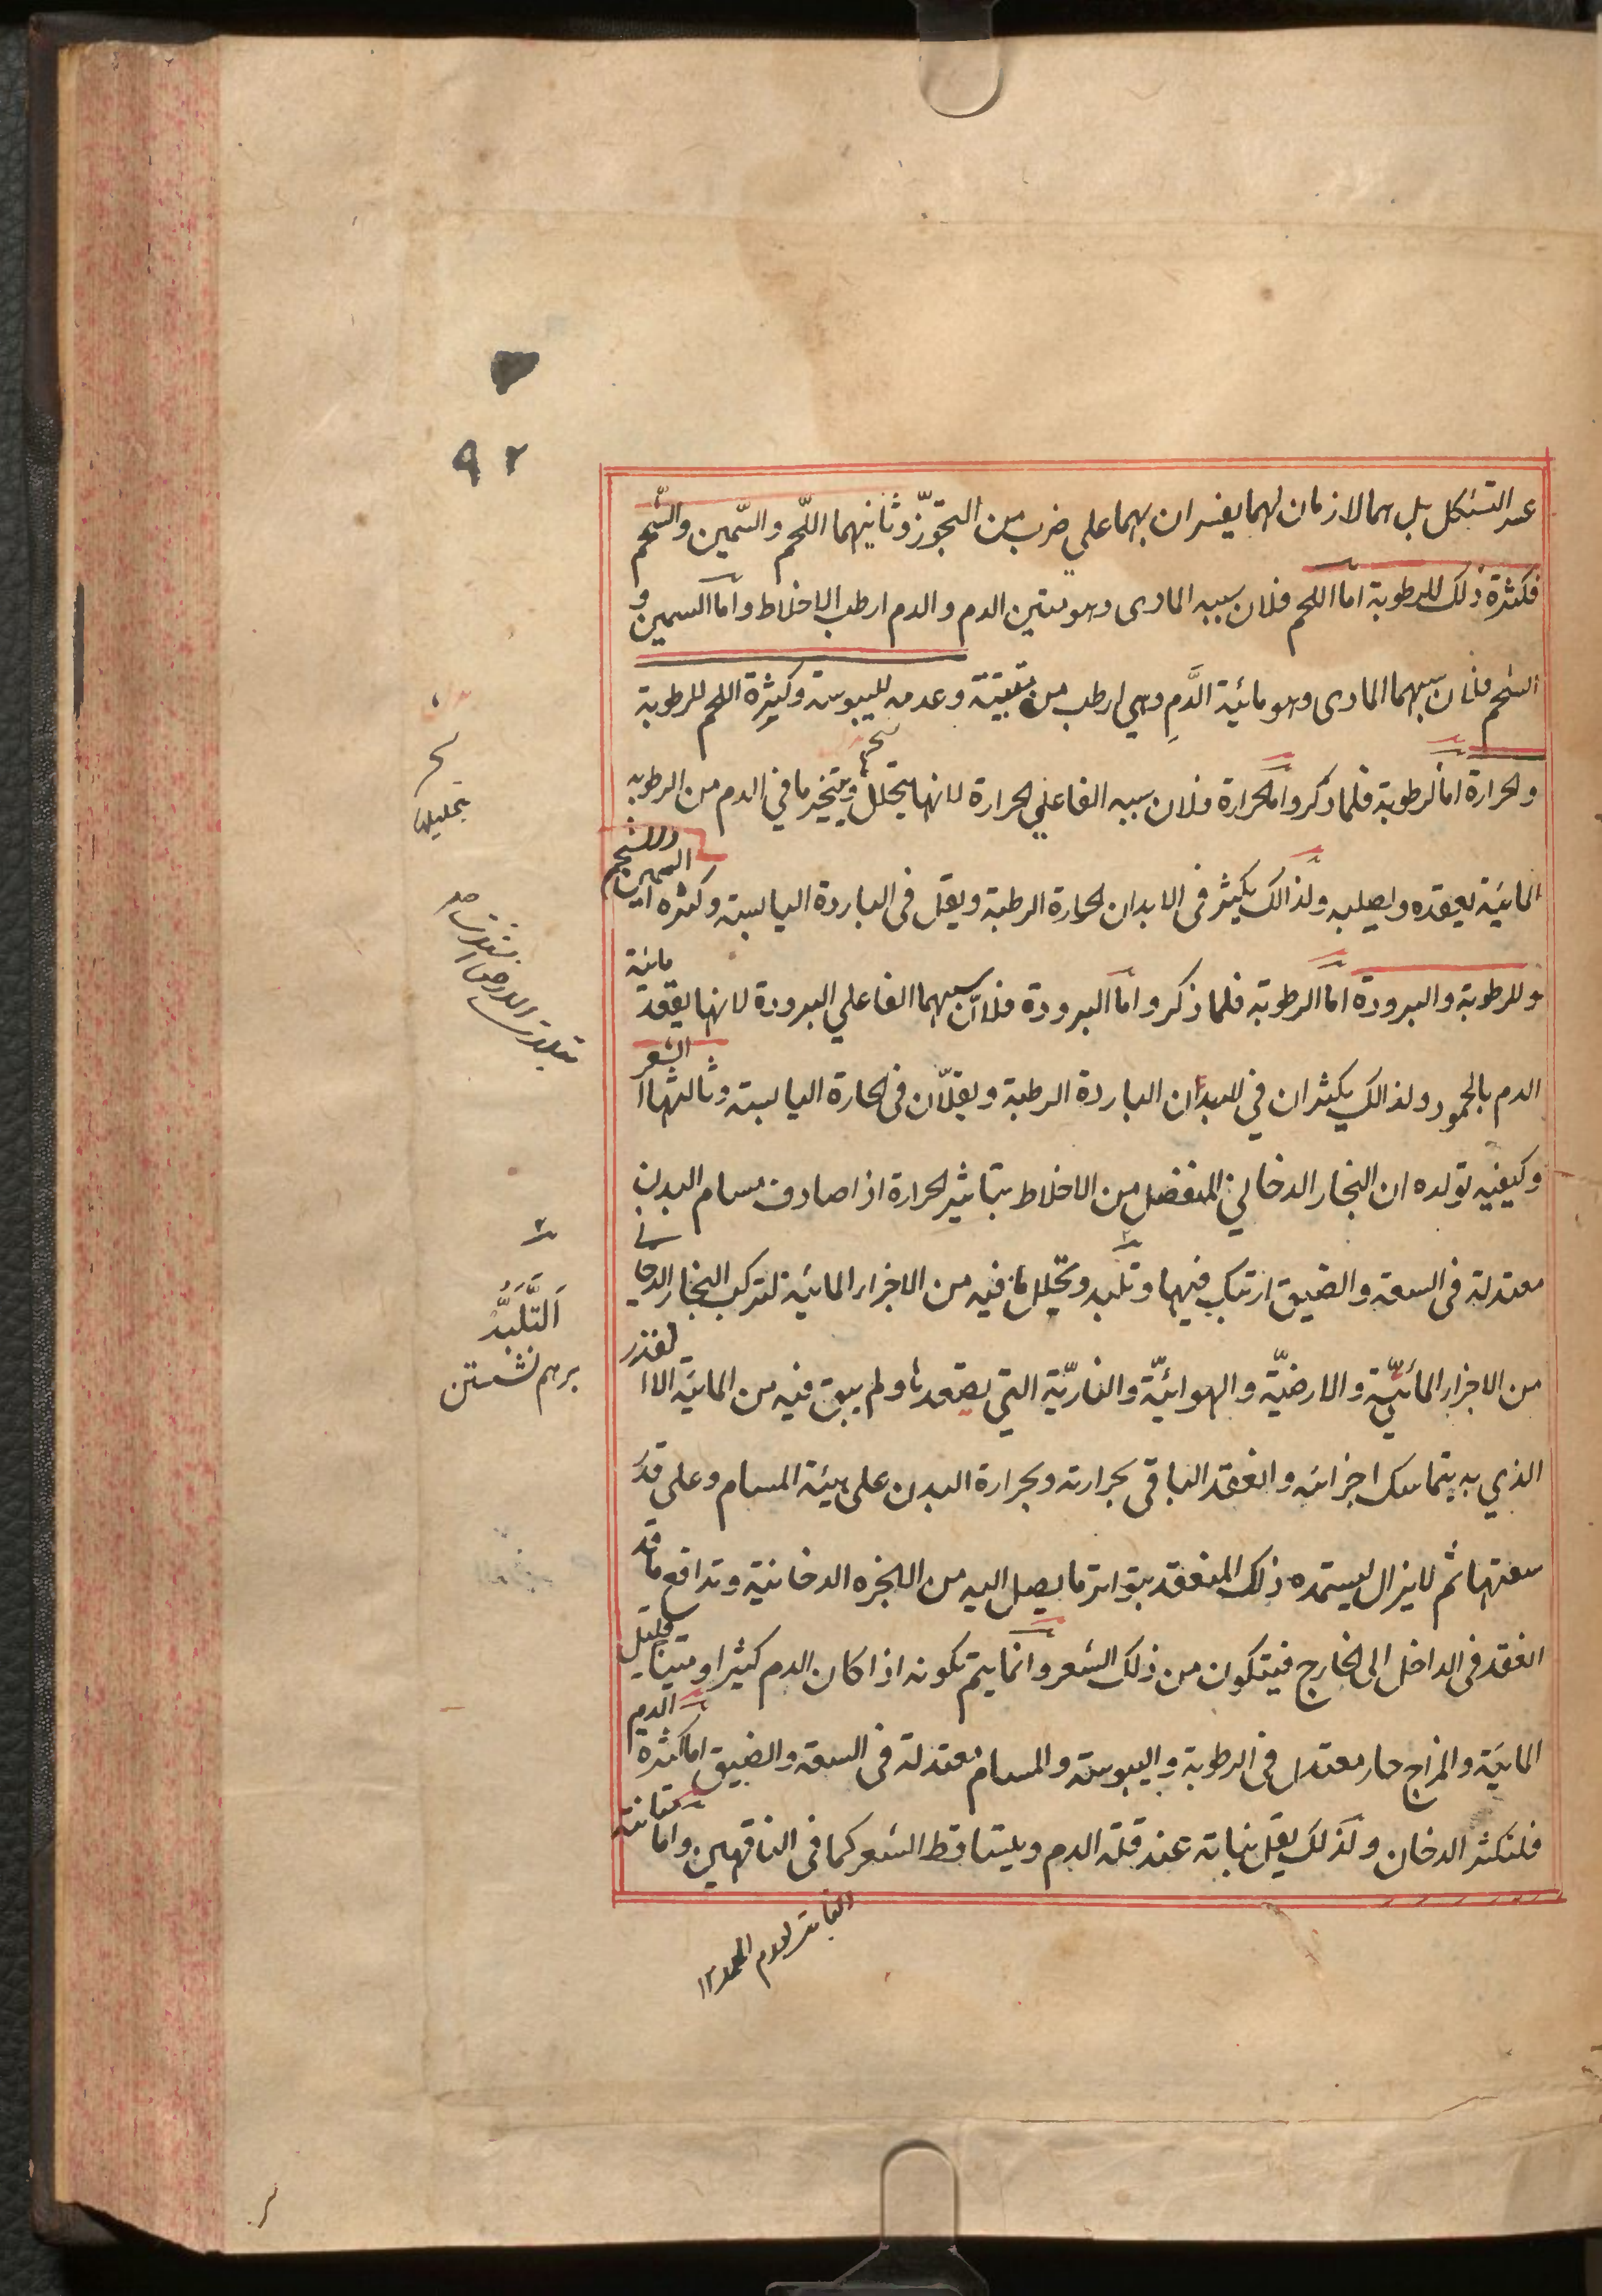 ٩٢
عسر التشكل بل هما لازمان لهما يفسران بهما علي ضرب من التجوّز وثانيهما اللّحم والسّمين والشّحم
فكثرة ذلك للرطوبة امّا اللحم فلان سببه المادى وهو متين الدم والدم ارطب الاخلاط وامّا السمين و
الشحم فلان سببهما المادى وهو مائية الدَّمِ وهي ارطب من متينة وعدمه لليبوسة وكثرة اللحم للرطوبة
والحرارة اما الرطوبة فلما ذكر واما الحرارة فلان سببه الفاعلي الحرارة لانها يتحلل ويتبخر ما في الدم من الرطوبة
المائية يعقده ويصلبه ولذالك يكثر فى الابدان الحارة الرطبة ويقل فى الباردة اليابسة وكثرة السمين والشحم
وللرطوبة والبرودة امّا الرطوبة فلما ذكر وامّا البرودة فلانّ سببهما الفاعلي البرودة لانها يعقد مائية
الدم بالجمود ولذالك يكثران في الابدان الباردة الرطبة ويقلّان فى الحارة اليابسة وثالثها الشعر
وكيفية تولده ان البخار الدخاني المنفصل من الاخلاط بتاثير الحرارة اذا صادف مسام البدن
معتدلة فى السعة والضيق ارتبك فيها وتلبد وتحلل ما فيه من الاجزاء المائية لتركب البخار الدخاني
من الاجزاء المائيّة والارضيّة والهوائيّة والناريّة التي يصعدها ولم يبق فيه من المائية الا القدر
الذي به يتماسك اجزائه وانعقد الباقي بحرارته وبحرارة البدن على هيئة المسام وعلى قدر
سعتها ثم لايزال يستمده ذلك المنعقد بتواتر ما يصل اليه من الابخرة الدخانية وتدافع ما قد
انعقد فى الداخل الى الخارج فيتكون من ذلك الشعر وانما يتم تكونه اذا كان الدم كثيرا ومتينا قليل
المائية والمزاج حار معتدل فى الرطوبة واليبوسة والمسام معتدلة فى السعة والضيق اما كثرة الدم
فلتكثر الدخان ولذلك يقل نباته عند قلة الدم ويتساقط الشعر كما فى الناقهين واما متانته
بتحليلها
اَلتَّلَبُّدُ
برهم نشستن